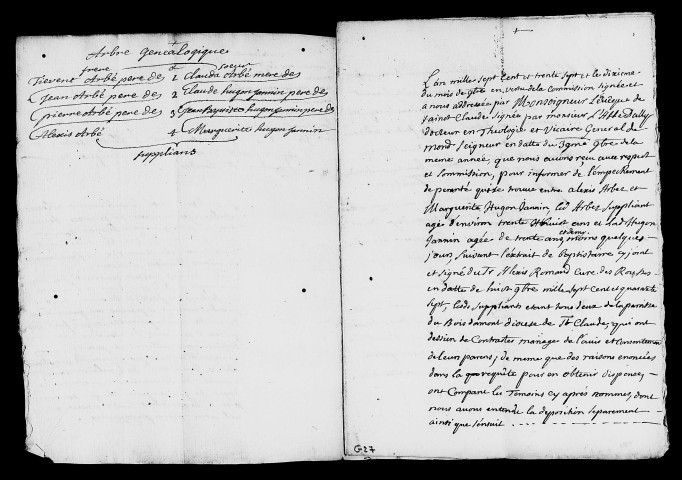 Arbre genealogique
frere et soeur
Tievent Arbé pere de 1 Clauda Arbé mere des
Jean Arbé pere des 2 Claude hugon Jannin, pere des
pierre Arbé pere des 3 Jean Baptiste hugon Jannin pere des
Alexis Arbé 4 Marguerite hugon Jannin
supplians
L'an mille sept cent et trente sept et le dixieme
du mois de 9bre en vertu de la Commission signée et
a nous addressée par Monseigneur L'évêque de
saint Claude signée par monsieur L'Abbé
docteur en Theologie et Vicaire General de
mond. Seigneur en datte du 9bre de la
meme année, que nous avons reçu avec respect
et sommission, pour informer de l'empechement
de parenté qui se trouve entre alexis Arbez et
Marguerite Hugon Jannin, led. Arbez suppliant
agé d'environ trente huict ans et lad. Hugon
Jannin agée de trente ans et demy moins quelques
jours suivant l'extrait de Baptistaire cy joint
et signé du Sr Alexis Romand Curé des Rousses
en datte de huict 9bre mille sept cent et quarante
sept, lesd. suppliants etant tous deux de la parroisse
du Bois damont diocese de St. Claude, qui ont
dessein de Contracter mariage de l'avis et consentement
de leurs parens; de meme que des raisons enoncées
dans la requête pour en obtenir dispense,
ont Comparu les Temoins cy après nommés, dont
nous avons entendu la deposition separement
ainsi que s'ensuit
G27